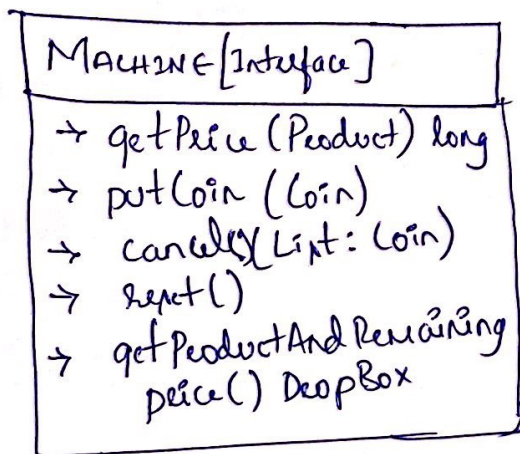 MACHINE [Interface]
→ getPrice (Product) long
→ putCoin (Coin)
→ cancel() (List: Coin)
→ reset()
→ getProductAndRemaining
price() DropBox